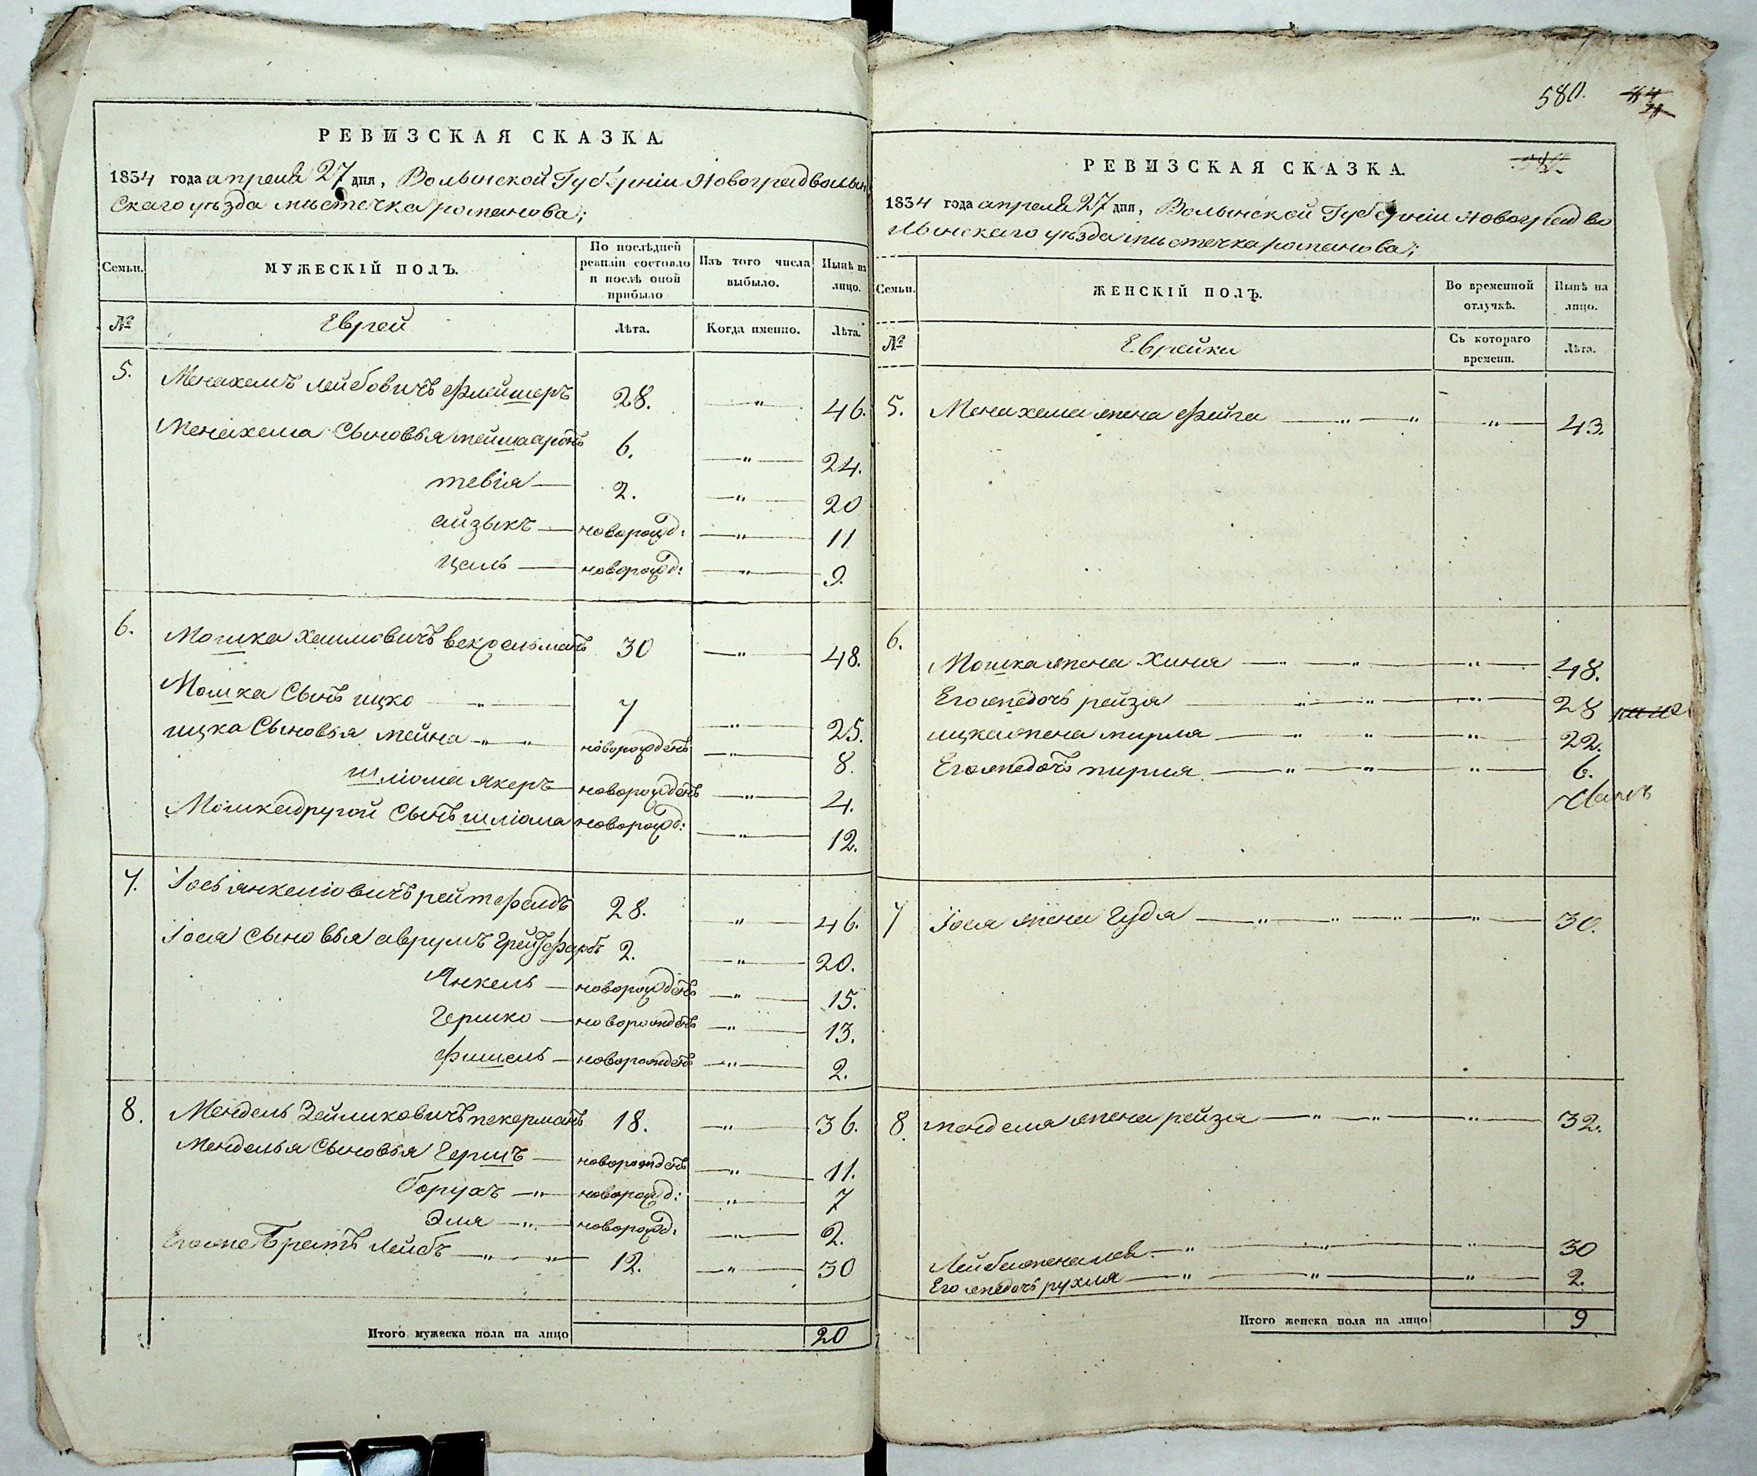 РЕВИЗСКАЯ СКАЗКА.
1834 года апреля 27 дня, Волынской Губернiи Новоградволын
скаго уѣзда мѣстечка романова;
Семьи. МУЖЕСКIЙ ПОЛЪ. По послѣдней ревизiи состояло и послѣ оной прибыло Изъ того числа выбыло. Нынѣ на лицо.
№ Еврей Лѣта. Когда именно. Лѣта.
5. Менахемъ Лейбовичъ Флейшеръ 28. —„— 46.
Менахема Сыновья мейшааронъ 6. —„— 24.
тевiя — 2. —„— 20
айзыкъ — новорожд: —„— 11
цаль — новорожд: —„— 9.
6. Мошка хаимовичъ вексельманъ 30 —„— 48.
Мошка Сынъ ицко —„— 7 —„— 25.
ицка Сыновья мейна —„—„ новорожденъ —„— 8.
шлiома якеръ — новорожденъ —„— 4.
Мошка другой Сынъ шлiома новорожд: —„— 12.
7. Iось янкелiовичъ рейтфалдъ 28. —„— 46.
Iося Сыновья аврумъ 2. —„— 20.
Янкель — новорожденъ —„— 15.
Гершко — новорожденъ —„— 13.
Фишель — новорожденъ —„— 2.
8. Мендель Зейликовичъ пекерманъ 18. —„— 36.
Менделья Сыновья Гершъ — новорожденъ —„— 11.
борухъ —„— новорожд: —„— 7
Эля —„— новорожд: —„— 2.
Егоже Братъ Лейбъ —„—„— 12. —„— 30
Итого мужеска пола на лицо 20
580.
РЕВИЗСКАЯ СКАЗКА.
1834 года апреля 27 дня, Волынской Губернiи Новоград во
лынскаго уѣзда мѣстечка романова;
Семьи. ЖЕНСКIЙ ПОЛЪ. Во временной отлучкѣ. Нынѣ на лицо.
№ Еврейки Съ котораго времени. Лѣта.
5. Менахема жена Фейга —„—„ —„— 43.
6. Мошка жена Хиня —„—„— —„— 48.
Егожедочь рейзя —„—„— —„— 28
ицка жена мирля —„—„— —„— 22.
Егожедочь пирля —„—„— —„— 6.
7 Iося жена Гудя —„—„—„— —„— 30.
8. менделя жена рейза —„—„— —„— 32.
Лейба жена лея —„—„— —„— 30
Егожедочь рухля —„—„— —„— 2.
Итого женска пола на лицо 9